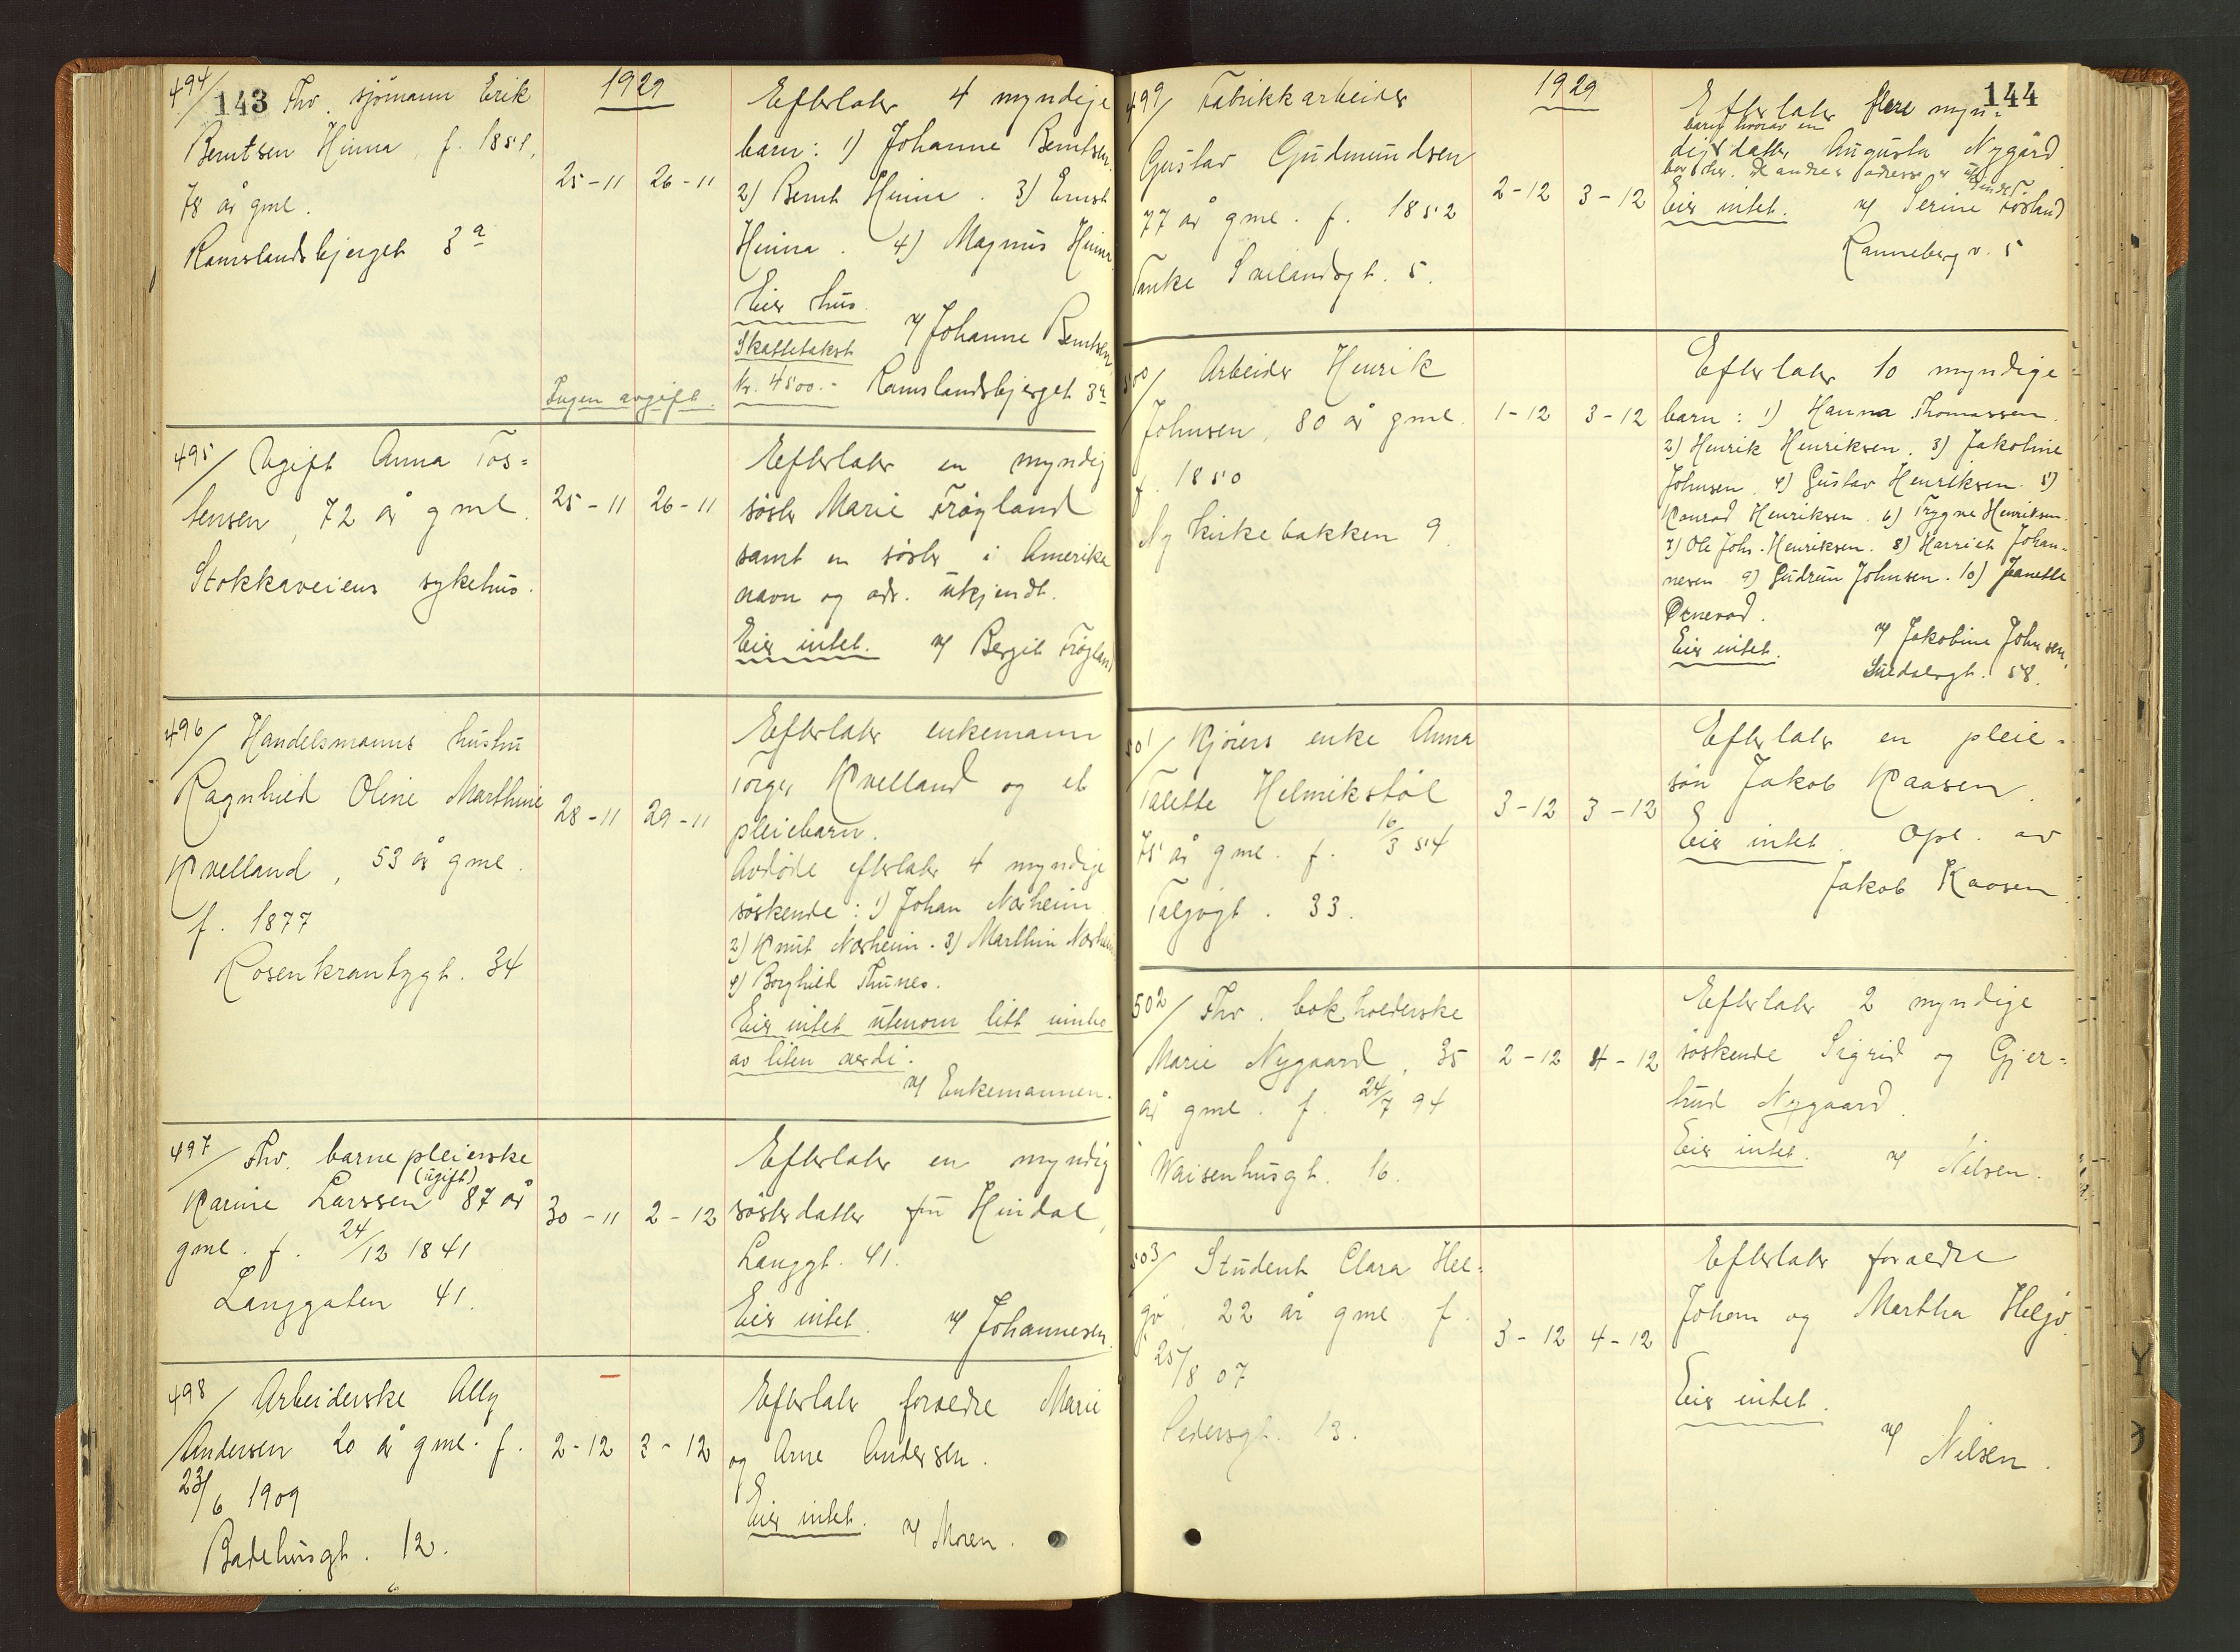 143
1929
494/ Fhv. sjömann Erik
Berntsen Hinna, f. 1851,
78 år gml.
Ramslandsbjerget 3a
25-11 26-11
Ingen avgift.
Efterlater 4 myndige
barn: 1) Johanne Berntsen
2) Bernt Hinna. 3) Ernst
Hinna. 4) Magnus Hinna
Eier hus
Skattetakst
kr. 4500.-
v/ Johanne Berntsen,
Ramslandsbjerget 3a
495/ Ugift Anna Tos-
tensen, 72 år gml.
Stokkaveiens sykehus.
25-11 26-11
Efterlater en myndig
søster Marie Frøyland
samt en søster i Amerika
navn og adr. ukjendt.
Eier intet. v/ Bergit Frøyland
496/ Handelsmanns hustru
Ragnhild Oline Marthine
Kvelland, 53 år gml.
f. 1877
Rosenkrantzgt. 34
28-11 29-11
Efterlater enkemann
Torger Kvelland og et
pleiebarn.
Avdøde efterlater 4 myndige
søskende: 1) Johan Nærheim
2) Knut Nærheim. 3) Marthin Nærheim
4) Borghild Thunes.
Eier intet utenom litt innbo
av liten verdi.
v/ Enkemannen.
497/ Fhv. barnepleierske
(ugift)
Karine Larssen 87 år
gml. f. 24/12 1841
Langgaten 41.
30-11 2-12
Efterlater en myndig
søsterdatter fru Hindal,
Langgt. 41.
Eier intet. v/ Johannesen.
498/ Arbeiderske Ally
Andersen 20 år gml. f.
23/6 1909
Badehusgt. 12.
2-12 3-12
Efterlater foreldre Marie
og Arne Andersen.
Eier intet. v/ Moren.
144
1929
499/ Fabrikkarbeider
Gustav Gudmundsen
77 år gml. f. 1852
Tanke Svilandsgt. 5.
2-12 3-12
Efterlater flere myn-
barn hvorav en
dige datter Augusta Nygård
bor her. De andres adresse er ukjendt.
Eier intet. v/ Serine Fosland
Ranneberg v. 5
500/ Arbeider Henrik
Johnsen, 80 år gml.
f. 1850
Ny kirkebakken 9
1-12 3-12
Efterlater 10 myndige
barn: 1) Hanna Thomassen.
2) Henrik Henriksen. 3) Jakobine
Johnsen. 4) Gustav Henriksen. 5)
Konrad Henriksen. 6) Trygve Henriksen.
7) Ole Johs. Henriksen. 8) Harriet Johan-
nesen 9) Gudrun Johnsen. 10) Jeanette
Ørnevad.
Eier intet.
v/ Jakobine Johnsen,
Suldalsgt. 58.
501/ Kjørers enke Anna
Talette Helmikstøl
75 år gml. f. 16/3 54
Taljegt. 33.
3-12 3-12
Efterlater en pleie-
søn Jakob Kaasen.
Eier intet. Opl. av
Jakob Kaasen.
502/ Fhv. bokholderske
Marie Nygaard, 35
år gml. f. 24/7 94
Waisenhusgt. 16.
2-12 4-12
Efterlater 2 myndige
søskende Sigrid og Gjer-
trud Nygaard.
Eier intet. v/ Nilsen.
503/ Student Clara Hel-
gø, 22 år gml. f.
25/8 07
Pedersgt. 13.
3-12 4-12
Efterlater foreldre
Johan og Martha Helgø.
Eier intet.
v/ Nilsen.